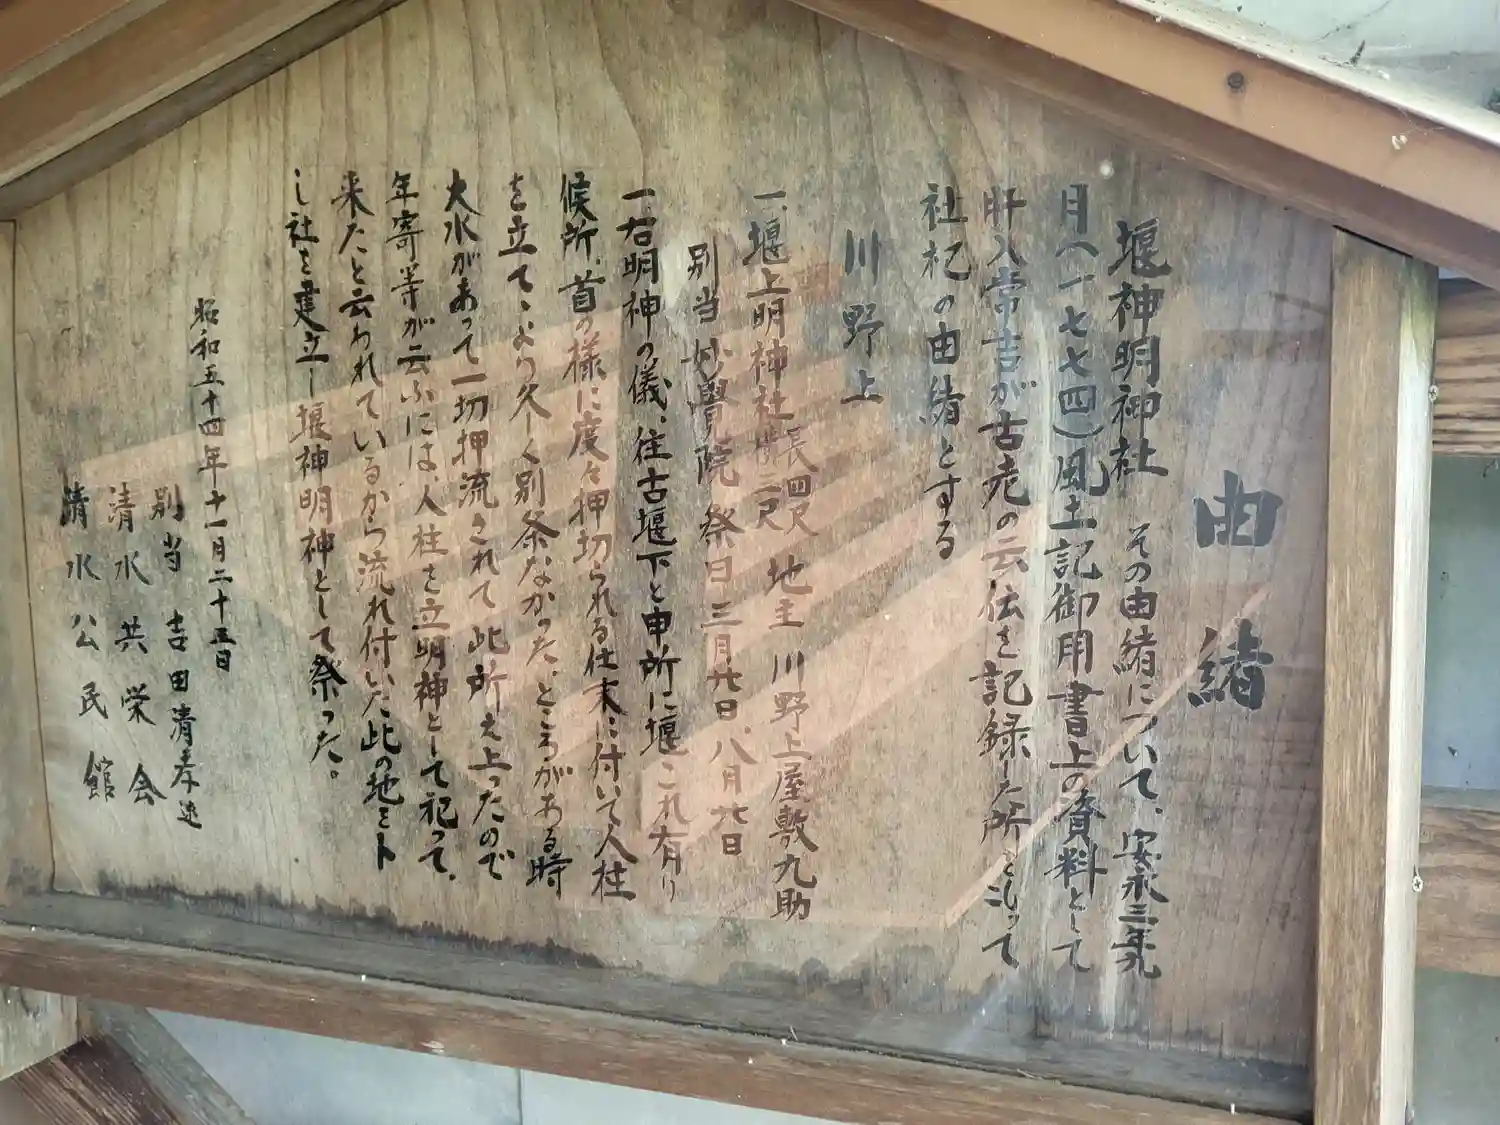 由緒
堰神明神社 その由緒について、安永三年九
月(一七七四)風土記御用書上の資料として
肝入常吉が古老の云伝を記録した所
社祀の由緒とする
川野上
一、堰上明神社 長四尺 横二尺 地主 川野上屋敷九助
別当妙覺院 祭日三月廿日、八月廿日
一、右明神の儀、往古堰下と申所に堰これ有り
候所、首の様に度々押切られる仕末に付いて人柱
を立て、より久しく別祭なかった、ところがある時
大水があって一切押流されて此所え上ったので
年寄等が云ふには、人柱を立明神として祀って、
来たと云われているから流れ付いた此の地をト
し社を建立し堰神明神として祭った。
昭和五十四年十一月二十五日
別当 吉田清孝
清水共栄会
清水公民館